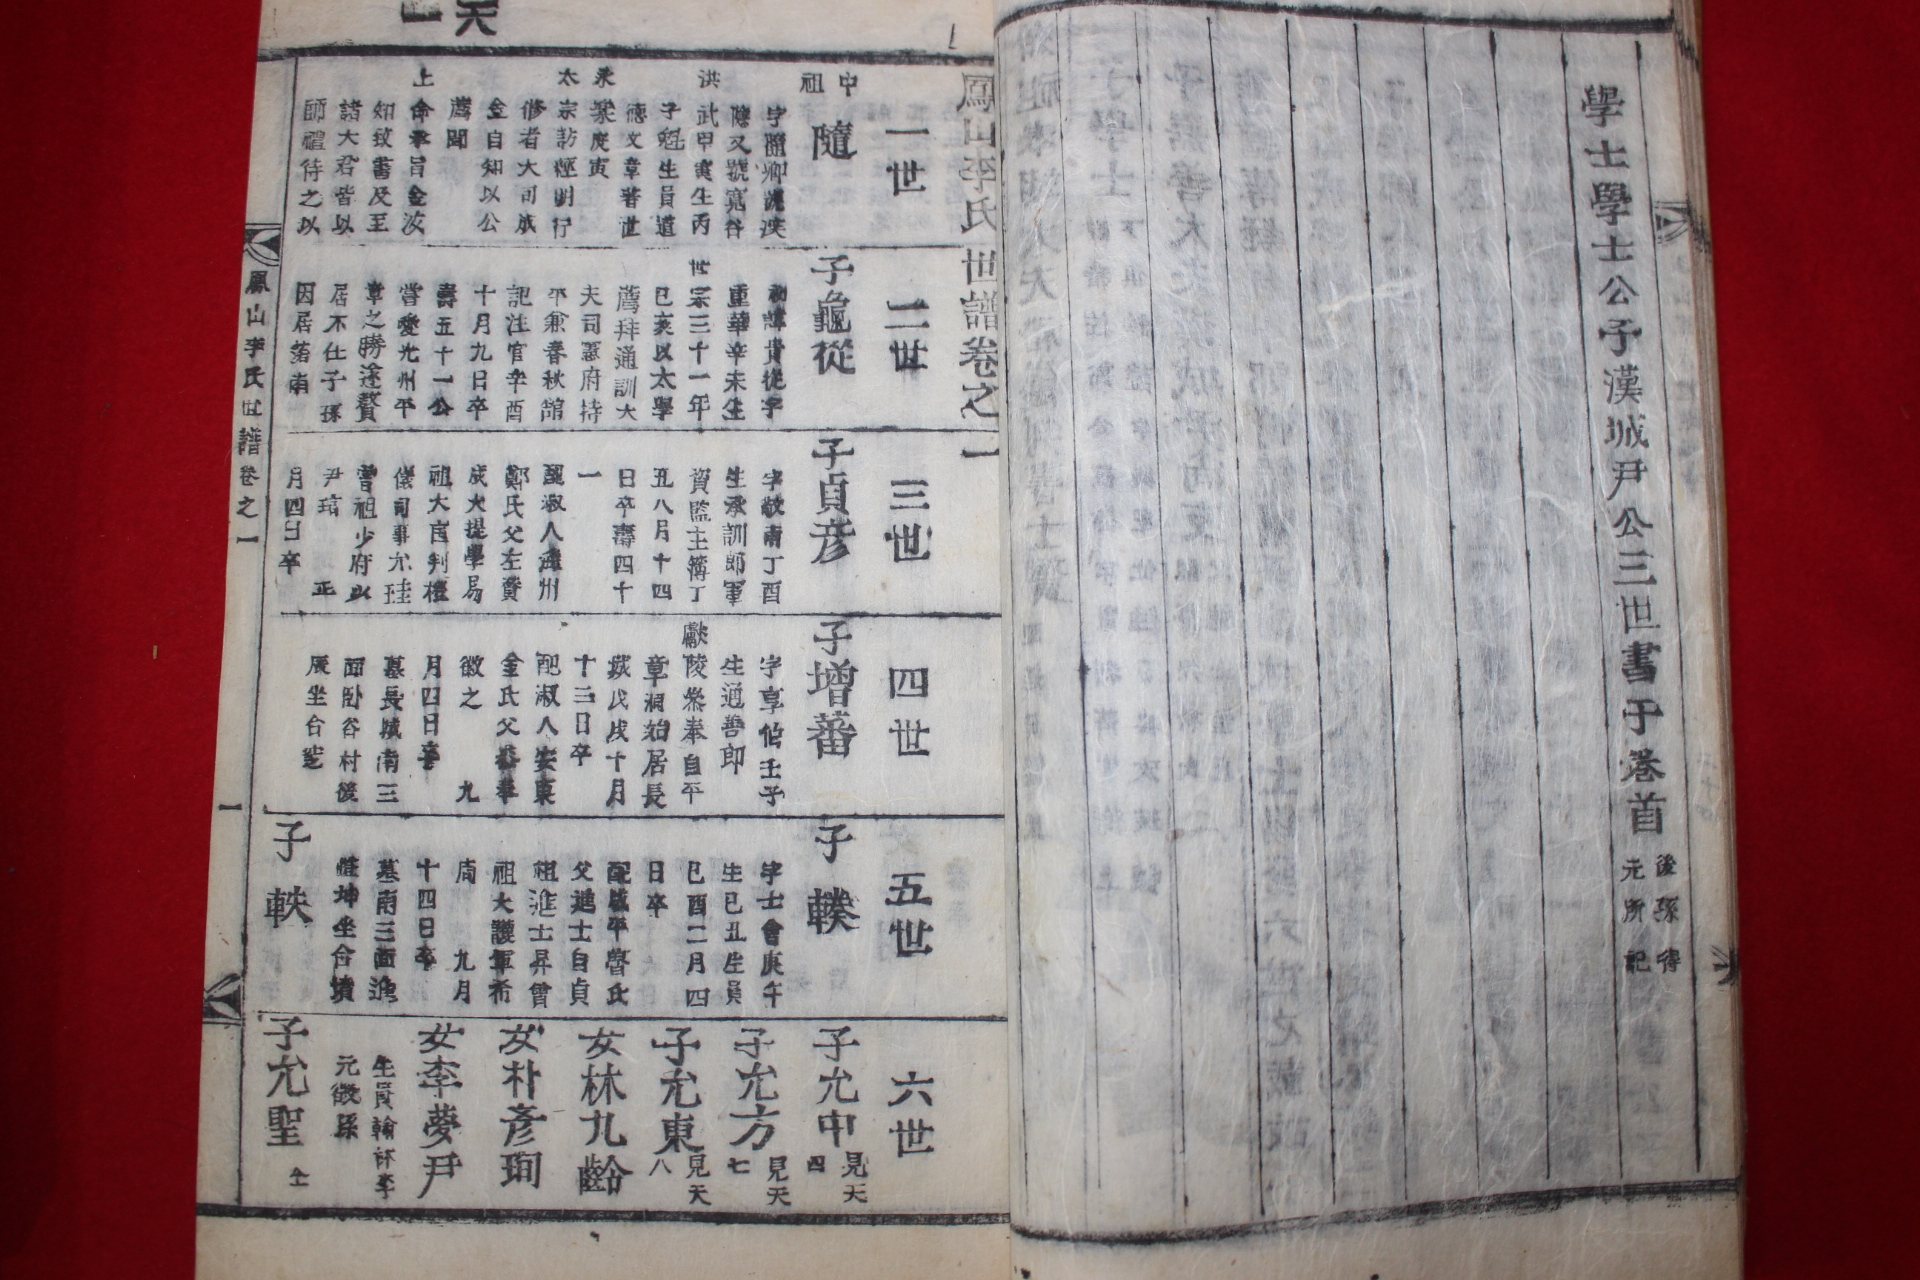 學士學士公子漢城尹公三世書于卷首
後孫得
元所記
天
一
鳳山李氏世譜卷之一
一世
中
祖
隨
洪武甲寅生丙
子魁生員道
德文章著世
永樂庚寅
太宗訪經明行
修者大司成
金自知以公
薦聞
上命奉旨金汝
知致書及至
諸大君皆以
師禮待之以
二世
子龜從
重華辛未生
世宗三十一年
己亥以太學
薦拜通訓大
夫司憲府持
平兼春秋館
記注官辛酉
十月九日卒
壽五十一公
嘗愛光州平
章之勝遂贅
居不仕子孫
因居落南
三世
子貞彦
字敬甫丁酉
生承訓郎軍
資監主簿丁
丑八月十四
日卒壽四十
一
配淑人海州
鄭氏父左贊
成大提學易
祖大匡判
曾祖少府
尹瑨 正
月四日卒
四世
子增蕃
字享伯壬子
生通善郎
獻陵參奉自平
章洞始居長
城戊戌十月
十三日卒
配淑人安東
金氏父
徵之 九
月四日卒
墓長城南三
面卧谷村後
辰坐合窆
五世
子輳
字士會庚午
生己丑生員
己酉二月四
日卒
配咸平魯氏
父進士自貞
祖進士昇曾
祖大護軍希
周 九月
十四日卒
墓南三面進
坤坐合墳
子軼
六世
子允中 見天四
子允方 見天七
子允東 見天八
女林九齡
女朴彥珣
女李夢尹
生員翰林李
元徵孫
子允聖
鳳山李氏世譜卷之一
一